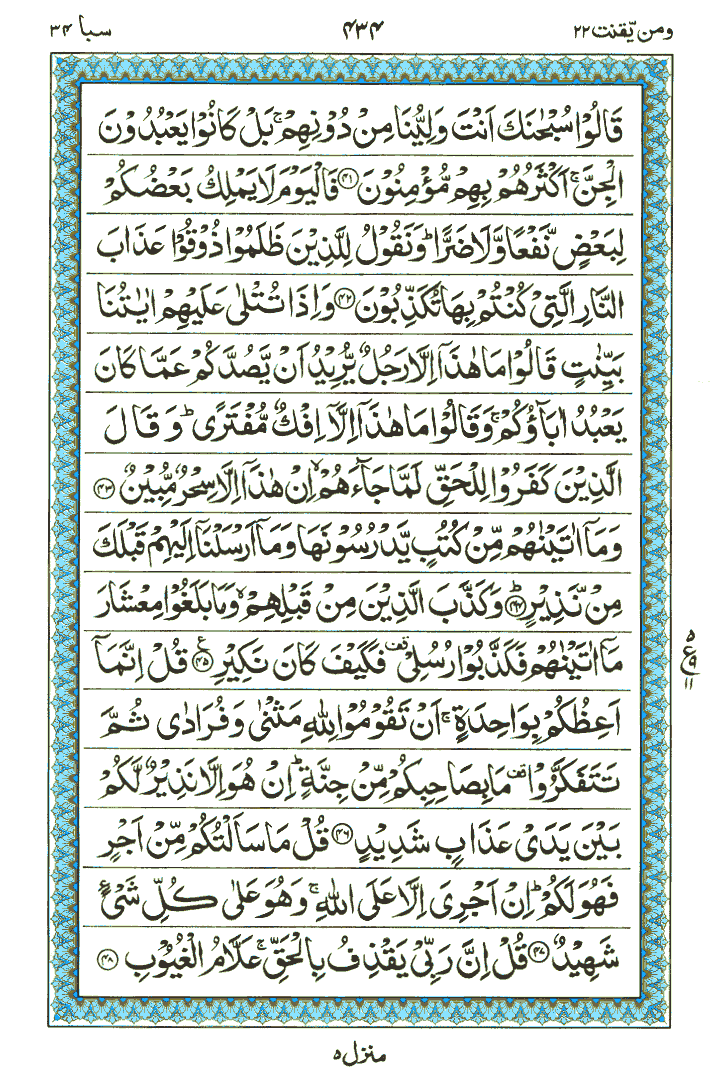 ومن يّقنت ٢٢ ٤٣٤ سبا ٣٤
قَالُوْا سُبْحٰنَكَ اَنْتَ وَلِيُّنَا مِنْ دُوْنِهِمْ ۚ بَلْ كَانُوْا يَعْبُدُوْنَ
الْجِنَّ ۚ اَكْثَرُهُمْ بِهِمْ مُّؤْمِنُوْنَ ﴿٤١﴾ فَالْيَوْمَ لَا يَمْلِكُ بَعْضُكُمْ
لِبَعْضٍ نَّفْعًا وَّلَا ضَرًّا ؕ وَنَقُوْلُ لِلَّذِيْنَ ظَلَمُوْا ذُوْقُوْا عَذَابَ
النَّارِ الَّتِيْ كُنْتُمْ بِهَا تُكَذِّبُوْنَ ﴿٤٢﴾ وَاِذَا تُتْلٰى عَلَيْهِمْ اٰيٰتُنَا
بَيِّنٰتٍ قَالُوْا مَا هٰذَاۤ اِلَّا رَجُلٌ يُّرِيْدُ اَنْ يَّصُدَّكُمْ عَمَّا كَانَ
يَعْبُدُ اٰبَآؤُكُمْ ۚ وَقَالُوْا مَا هٰذَاۤ اِلَّاۤ اِفْكٌ مُّفْتَرًى ؕ وَقَالَ
الَّذِيْنَ كَفَرُوْا لِلْحَقِّ لَمَّا جَآءَهُمْ ۙ اِنْ هٰذَاۤ اِلَّا سِحْرٌ مُّبِيْنٌ ﴿٤٣﴾
وَمَاۤ اٰتَيْنٰهُمْ مِّنْ كُتُبٍ يَّدْرُسُوْنَهَا وَمَاۤ اَرْسَلْنَاۤ اِلَيْهِمْ قَبْلَكَ
مِنْ نَّذِيْرٍ ؕ﴿٤٤﴾ وَكَذَّبَ الَّذِيْنَ مِنْ قَبْلِهِمْ ۙ وَمَا بَلَغُوْا مِعْشَارَ
مَاۤ اٰتَيْنٰهُمْ فَكَذَّبُوْا رُسُلِيْ ۫ فَكَيْفَ كَانَ نَكِيْرِ ﴿٤٥﴾ ع قُلْ اِنَّمَاۤ
ع ٥ ٩ ١١
اَعِظُكُمْ بِوَاحِدَةٍ ۚ اَنْ تَقُوْمُوْا لِلّٰهِ مَثْنٰى وَفُرَادٰى ثُمَّ
تَتَفَكَّرُوْا ۫ مَا بِصَاحِبِكُمْ مِّنْ جِنَّةٍ ؕ اِنْ هُوَ اِلَّا نَذِيْرٌ لَّكُمْ
بَيْنَ يَدَيْ عَذَابٍ شَدِيْدٍ ﴿٤٦﴾ قُلْ مَا سَاَلْتُكُمْ مِّنْ اَجْرٍ
فَهُوَ لَكُمْ ؕ اِنْ اَجْرِيَ اِلَّا عَلَى اللّٰهِ ۚ وَهُوَ عَلٰى كُلِّ شَيْءٍ
شَهِيْدٌ ﴿٤٧﴾ قُلْ اِنَّ رَبِّيْ يَقْذِفُ بِالْحَقِّ ۚ عَلَّامُ الْغُيُوْبِ ﴿٤٨﴾
منزل ٥